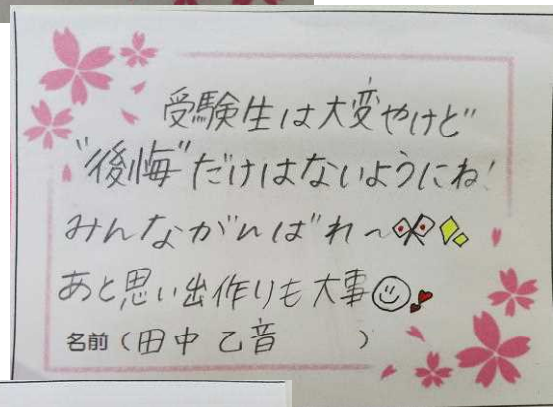 受験生は大変やけど
"後悔"だけはないようにね!
みんながんばれ～
あと思い出作りも大事
名前(田中 乙音)